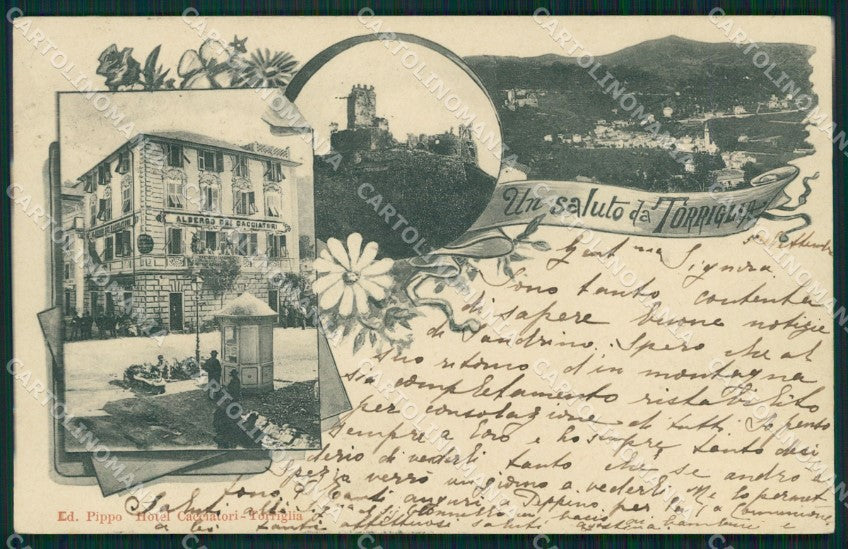 ALBERGO DEI CACCIATORI
Un saluto da TORRIGLIA
Settembre
Gent ma Signora
Sono tanto contenta
di sapere buone notizie
di Sandrino. Spero che al
suo ritorno d'in montagna
sia completamento ristabilito
per consolazione di tutti. Io penso
sempre a loro e ho sempre tanto desi
derio di vederli tanto che se andro a
verrò un giorno a vederli. Me lo permet
tono? Tanti auguri a Peppino per la 1a Comunione
Saluti
a lei tanti affettuosi saluti
Ed. Pippo Hotel Cacciatori - Torriglia
CARTOLINOMANIA